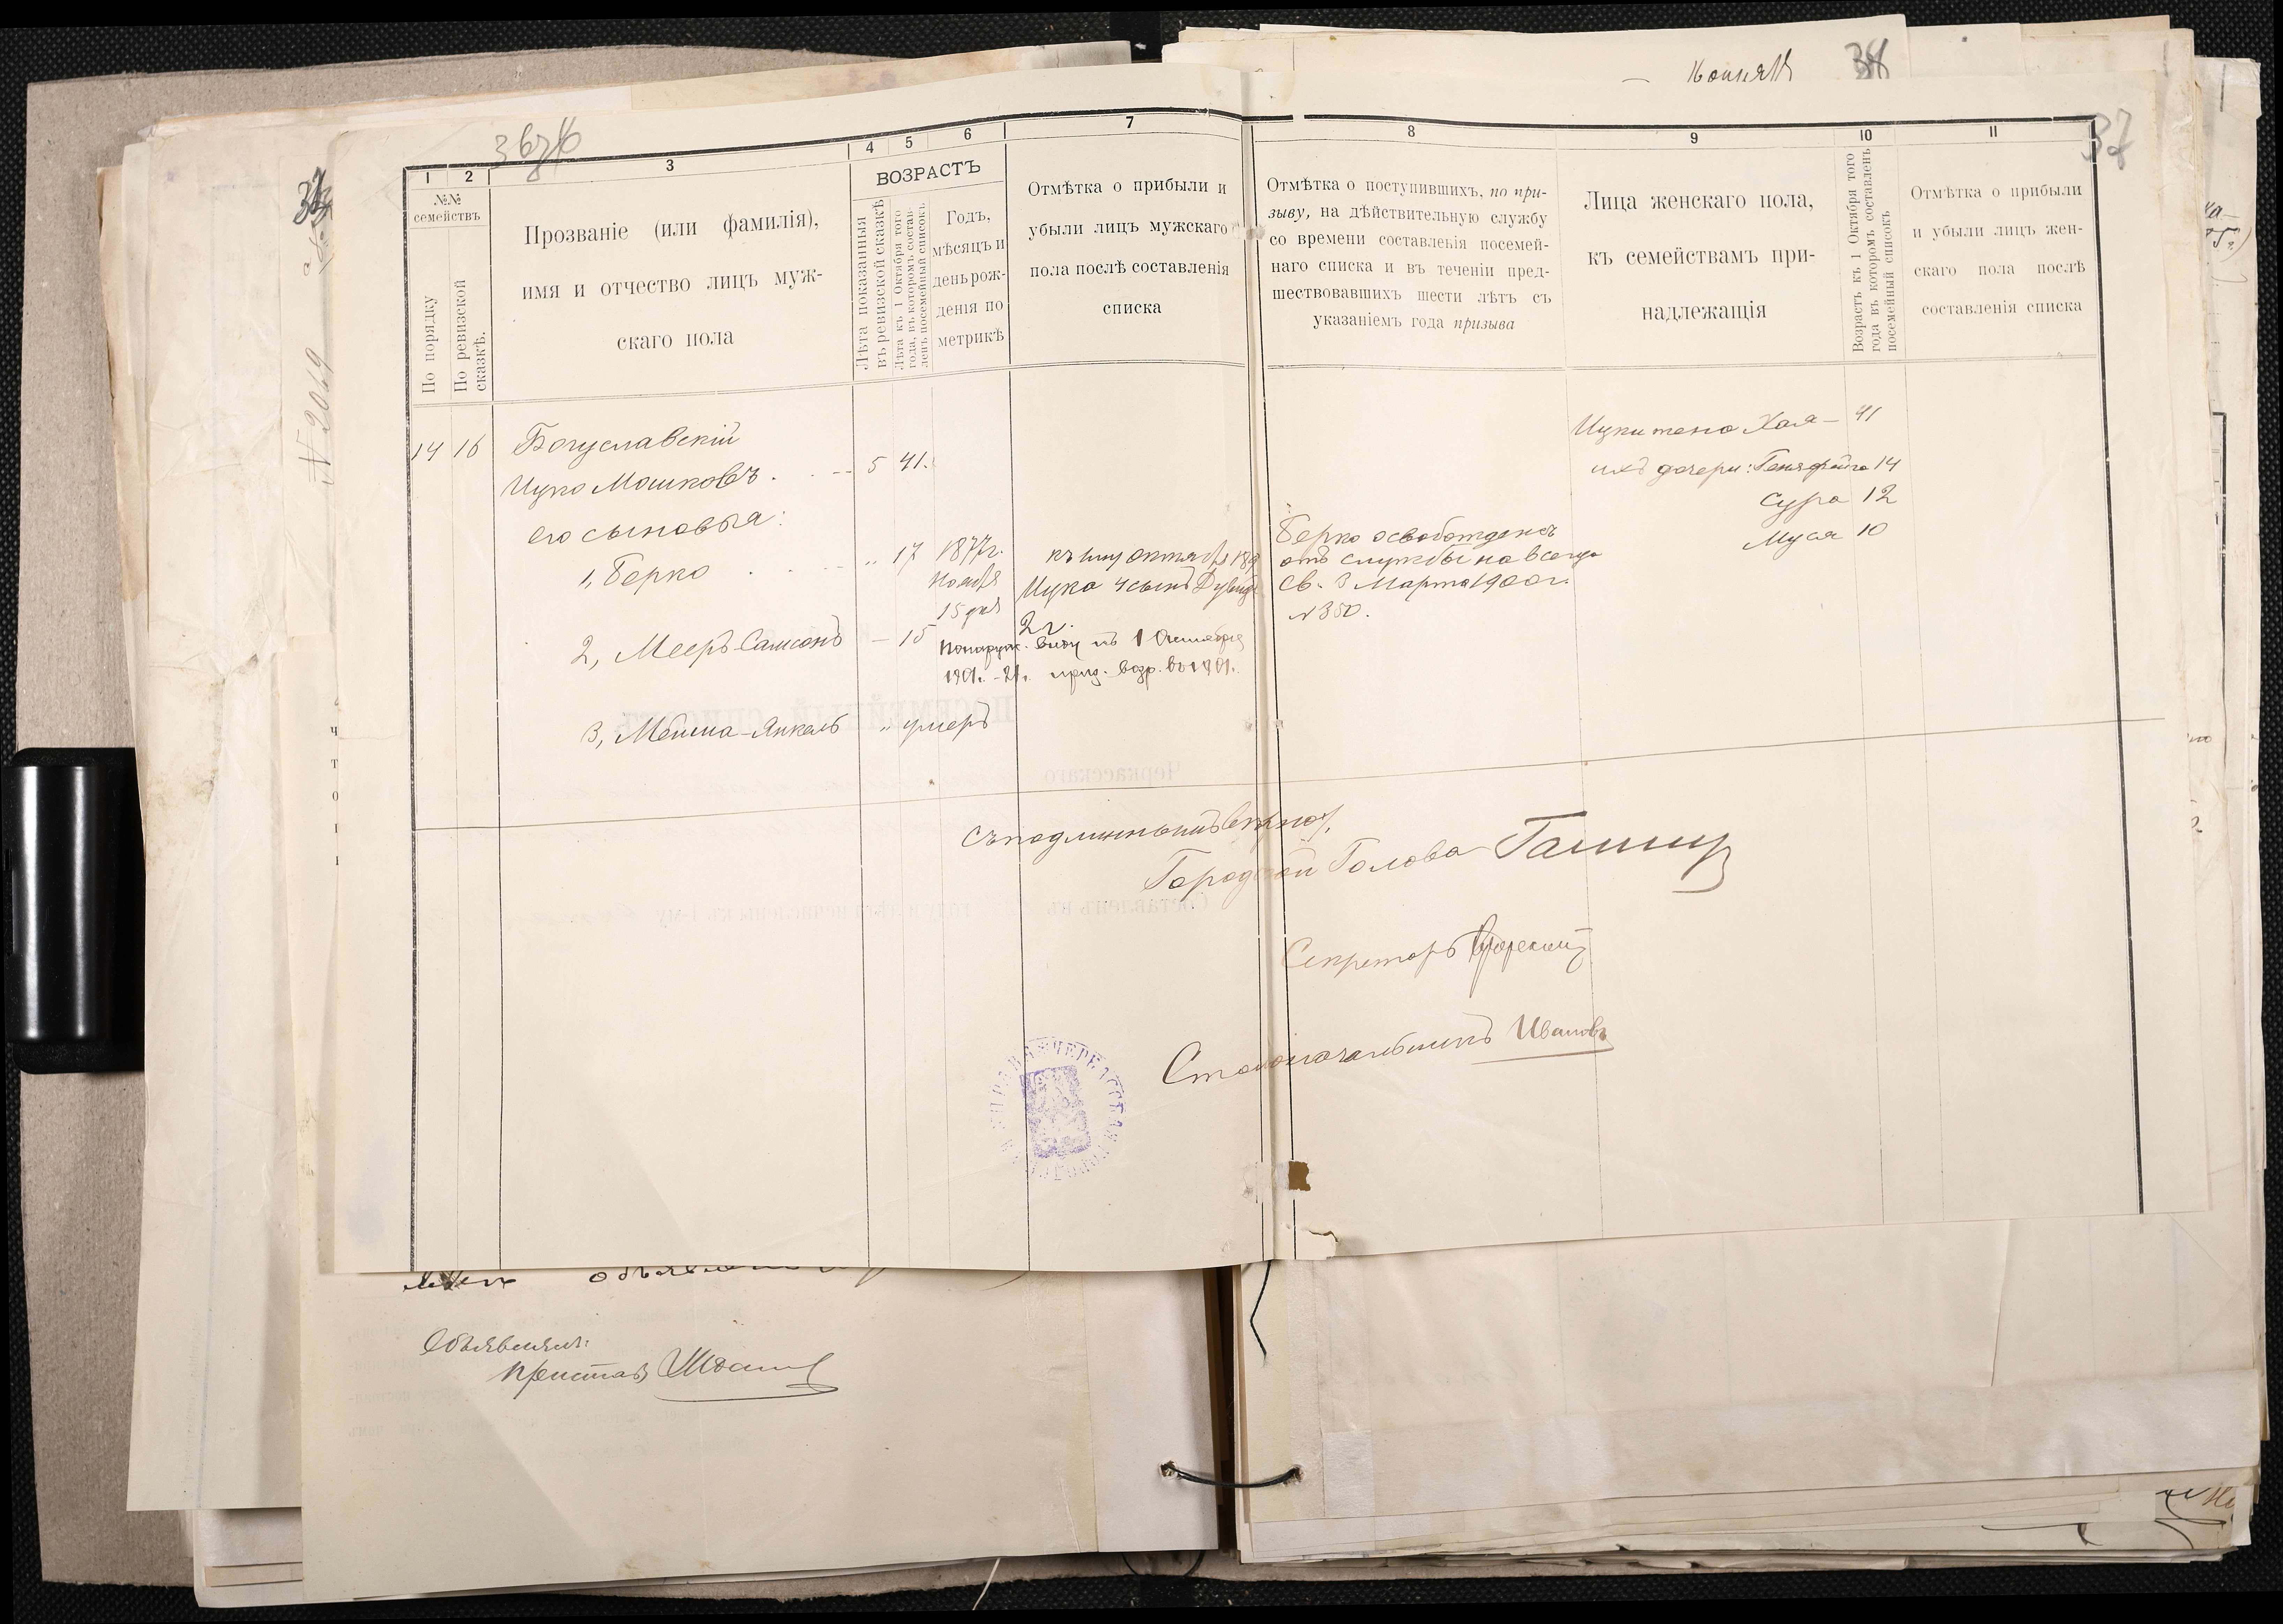 Копия 38
36 об
37
1 2 3 4 5 6 7 8 9 10 11
№№ семействъ
По порядку
По ревизской сказкѣ.
Прозваніе (или фамилія),
имя и отчество лицъ муж-
скаго пола
ВОЗРАСТЪ
Лѣта показанныя
въ ревизской сказкѣ
Лѣта къ 1 Октября того
года, въ которомъ состав-
ленъ посемейный списокъ.
Годъ,
мѣсяцъ и
день рож-
денія по
метрикѣ
Отмѣтка о прибыли и
убыли лицъ мужскаго
пола послѣ составленія
списка
Отмѣтка о поступившихъ, по при-
зыву, на дѣйствительную службу
со времени составленія посемей-
наго списка и въ теченіи пред-
шествовавшихъ шести лѣтъ съ
указаніемъ года призыва
Лица женскаго пола,
къ семействамъ при-
надлежащія
Возрастъ къ 1 Октября того
года въ которомъ составленъ
посемейный списокъ
Отмѣтка о прибыли
и убыли лицъ жен-
скаго пола послѣ
составленія списка
№ 2069
14 16 Богуславскій
Ицко Мошковъ . . -- 5 41.
его сыновья:
1, Берко . . " 17 1877г.
Ноября
15 дня
2, Мееръ-Самсонъ — 15
3, Мойша-Янкель " умеръ
къ 1му октября 189
Ицка 4 сынъ Дувидъ
2 г.
по наружн. виду къ 1 Октября
1901. - 21. приз. возр. въ 1901.
Берко освобожденъ
отъ службы навсегда
св. 3 Марта 1900 г.
№ 350.
Ицки жена Хая — 41
ихъ дочери: Геня-фейга 14
Сура 12
Муся 10
Съ подлиннымъ вѣрно,
Городской Голова
Секретарь
Столоначальникъ Ивановъ
Объявилъ:
Приставъ